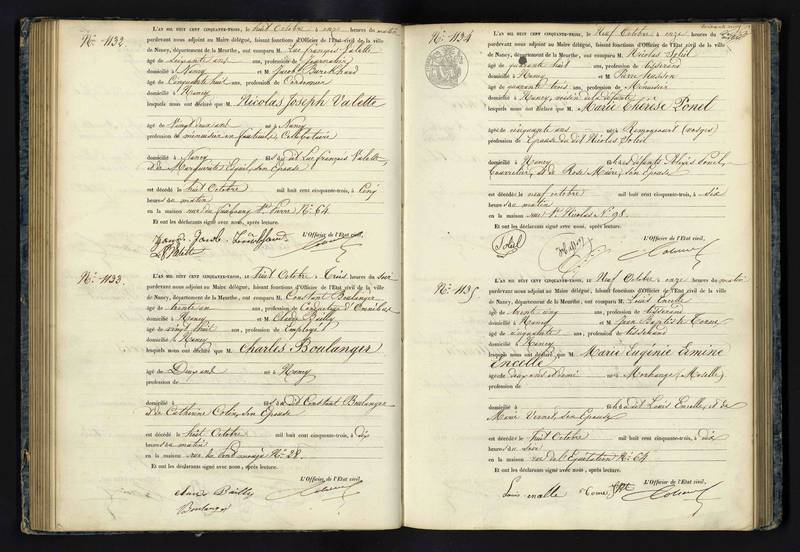 No. 1132
L'an mil huit cent cinquante-trois, le huit Octobre à onze heures du matin
pardevant nous adjoint au Maire délégué, faisant fonctions d'Officier de l'Etat civil de la ville
de Nancy, département de la Meurthe, ont comparu M. Luc françois Valette
âgé de soixante ans, profession de journalier
domicilié à Nancy et M. Jacob Burckhard
âgé de Cinquante huit ans, profession de Cordonnier
domicilié à Nancy
lesquels nous ont déclaré que M. Nicolas Joseph Valette
âgé de Vingt deux ans né à Nancy
profession de menuisier en fauteuils, Célibataire
domicilié à Nancy fils du dit Luc françois Valette
et de Marguerite son Epouse
est décédé le huit Octobre mil huit cent cinquante-trois, à Cinq
heures du matin
en la maison rue du faubourg St. Pierre No. 64
Et ont les déclarants signé avec nous, après lecture.
L'Officier de l'Etat civil,
No. 1133
L'an mil huit cent cinquante-trois, le huit Octobre à trois heures du soir
pardevant nous adjoint au Maire délégué, faisant fonctions d'Officier de l'Etat civil de la ville
de Nancy, département de la Meurthe, ont comparu M. Constant Boulanger
âgé de trente ans, profession de Conducteur d'Omnibus
domicilié à Nancy et M. Bailly
âgé de vingt huit ans, profession de Employé
domicilié à Nancy
lesquels nous ont déclaré que M. Charles Boulanger
âgé de Deux ans né à Nancy
profession de
domicilié à fils du dit Constant Boulanger
et de Catherine Colin, son Epouse
est décédé le huit Octobre mil huit cent cinquante-trois, à dix
heures du matin
en la maison rue No. 28
Et ont les déclarants signé avec nous, après lecture.
L'Officier de l'Etat civil,
Bailly
Boulanger
No. 1134
L'an mil huit cent cinquante-trois, le Neuf Octobre à onze heures du
pardevant nous adjoint au Maire délégué, faisant fonctions d'Officier de l'Etat civil de la ville
de Nancy, département de la Meurthe, ont comparu M. Nicolas Solel
âgé de quarante huit ans, profession de tisserand
domicilié à Nancy et M. Pierre
âgé de quarante trois ans, profession de Menuisier
domicilié à Nancy, voisin de la défunte
lesquels nous ont déclaré que M. Marie Thérèse Ponel
âgé de cinquante ans née à Remoncourt (vosges)
profession de Epouse du dit Nicolas Solel
domicilié à Nancy
son Epouse
est décédé le neuf octobre mil huit cent cinquante-trois, à six
heures du matin
en la maison rue St. Nicolas No. 98
Et ont les déclarants signé avec nous, après lecture.
L'Officier de l'Etat civil,
Solel
No. 1135
L'an mil huit cent cinquante-trois, le Neuf Octobre à onze heures du matin
pardevant nous adjoint au Maire délégué, faisant fonctions d'Officier de l'Etat civil de la ville
de Nancy, département de la Meurthe, ont comparu M. Louis Encelle
âgé de trente cinq ans, profession de tisserand
domicilié à Nancy et M. Jean Baptiste
âgé de cinquante ans, profession de tisserand
domicilié à Nancy
lesquels nous ont déclaré que M. Marie Eugénie Ermine
Encelle
âgé de deux ans et demi née à Morhange (Moselle)
profession de
domicilié à fille du dit Louis Encelle, et de
Marie Vernel, son Epouse
est décédé le huit Octobre mil huit cent cinquante-trois, à dix
heures du soir
en la maison rue de l'Equitation No. 64
Et ont les déclarants signé avec nous, après lecture.
L'Officier de l'Etat civil,
Louis